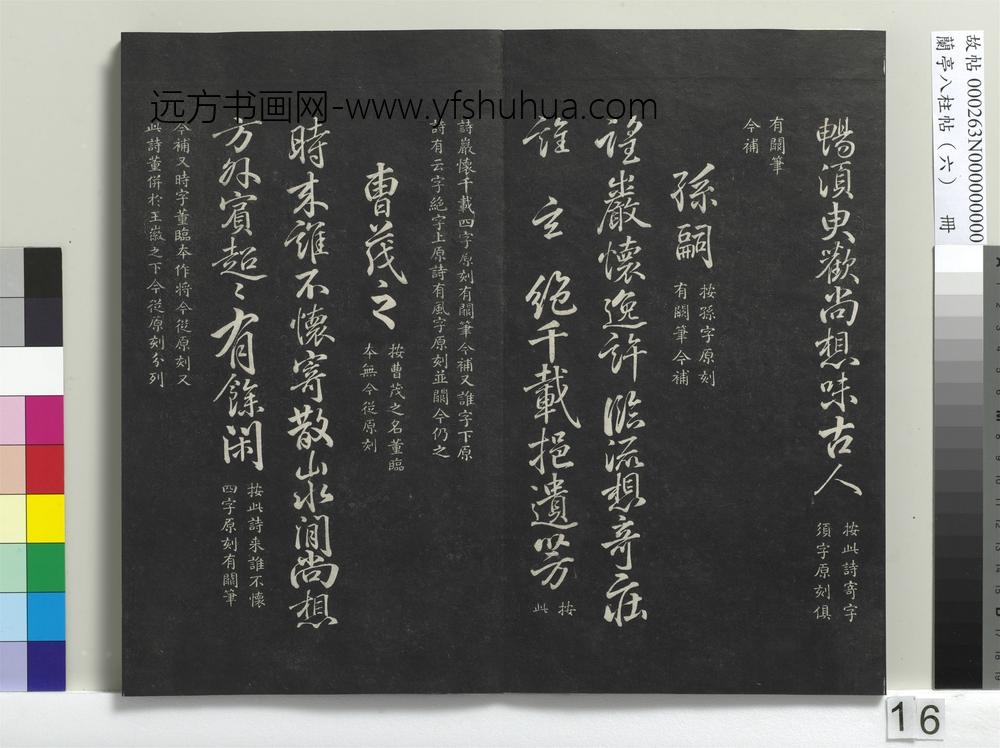 暢須臾歡尚想味古人
按此詩寄字
須字原刻俱
有闕筆
今補
孫嗣
按孫字原刻
有闕筆今補
望巖懷逸許臨流想奇莊
誰云絕千載挹遺芳
按
此
詩巖懷千載四字原刻有闕筆今補又誰字下原
詩有云字絕字上原詩有風字原刻並闕今仍之
曹茂之
按曹茂之名董臨
本無今從原刻
時來誰不懷寄散山水間尚想
方外賓超〻有餘閑
按此詩来誰不懷
四字原刻有闕筆
今補又時字董臨本作將今從原刻又
此詩董併於王徽之下今從原刻分列
远方书画网-www.yfshuhua.com
故帖 000263N000000000
蘭亭八柱帖（六） 冊
16